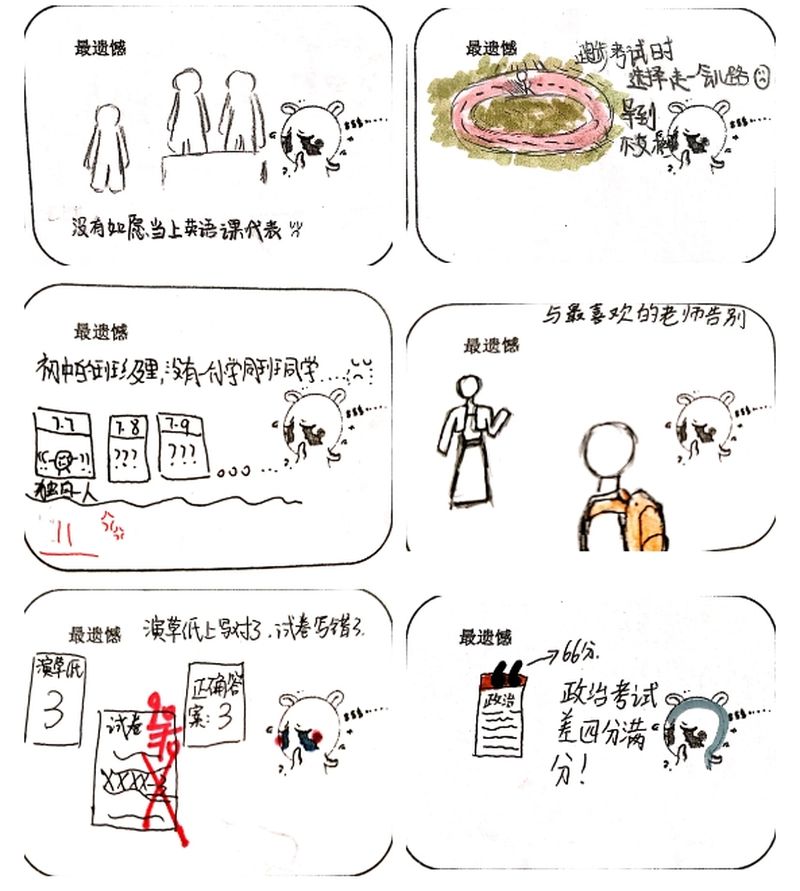 最遗憾
没有如愿当上英语课代表
最遗憾
跑步考试时
选择走一会儿路
导到
最遗憾
初中的班级里,没有一个小学同班同学......
7.7
7.8
7.9
???
???
独自一人
11
与最喜欢的老师告别
最遗憾
最遗憾
演草纸上写对了,试卷写错了
演草纸
3
试卷
正确答
案:3
最遗憾
66分
政治
政治考试
差四分满
分!